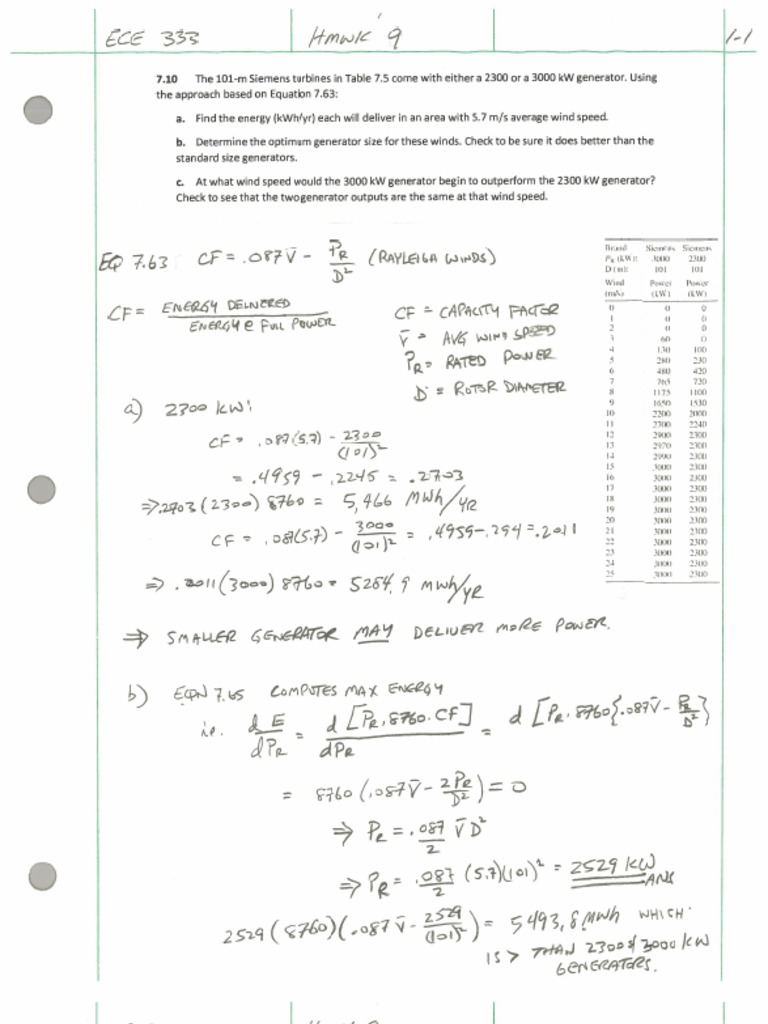 ECE 333 HMWK 9 1-1
7.10 The 101-m Siemens turbines in Table 7.5 come with either a 2300 or a 3000 kW generator. Using
the approach based on Equation 7.63:
a. Find the energy (kWh/yr) each will deliver in an area with 5.7 m/s average wind speed.
b. Determine the optimum generator size for these winds. Check to be sure it does better than the
standard size generators.
c. At what wind speed would the 3000 kW generator begin to outperform the 2300 kW generator?
Check to see that the two generator outputs are the same at that wind speed.
EQ 7.63 CF = .087 V̄ - P̄R/D² (RAYLEIGH WINDS)
CF = ENERGY DELIVERED / ENERGY @ FULL POWER
CF = CAPACITY FACTOR
V̄ = AVG WIND SPEED
PR = RATED POWER
D = ROTOR DIAMETER
Brand Siemens Siemens
PR (kW): 3000 2300
D (m): 101 101
Wind Power Power
(m/s) (kW) (kW)
0 0 0
1 0 0
2 0 0
3 60 0
4 130 100
5 280 230
6 480 420
7 765 720
8 1175 1100
9 1650 1530
10 2200 2000
11 2700 2240
12 2900 2300
13 2970 2300
14 2990 2300
15 3000 2300
16 3000 2300
17 3000 2300
18 3000 2300
19 3000 2300
20 3000 2300
21 3000 2300
22 3000 2300
23 3000 2300
24 3000 2300
25 3000 2300
a) 2300 kW:
CF = .087(5.7) - 2300/(101)²
= .4959 - .2245 = .2703
⇒ .2703 (2300) 8760 = 5,466 MWh/YR
CF = .087(5.7) - 3000/(101)² = .4959-.294=.2011
⇒ .2011(3000) 8760 = 5284.9 MWh/YR
⇒ SMALLER GENERATOR MAY DELIVER MORE POWER.
b) EQN 7.65 COMPUTES MAX ENERGY
i.e. dE/dPR = d[PR.8760.CF]/dPR = d [PR.8760{.087V̄ - PR/D²}
= 8760 (.087V̄ - 2PR/D²) = 0
⇒ PR = .087/2 V̄ D²
⇒ PR = .087/2 (5.7)(101)² = 2529 kW
ANS
2529 (8760)(.087 V̄ - 2529/(101)²) = 5493.8 MWh WHICH
IS > THAN 2300 & 3000 kW
GENERATORS.